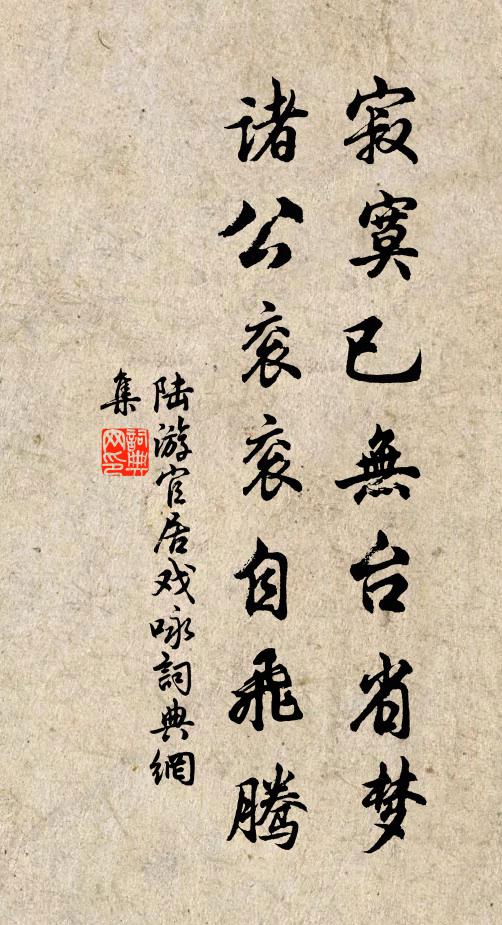 寂寞已無台省梦
诸公衮衮自飛騰
陆游官居戏咏詞典網
集
詞典网印